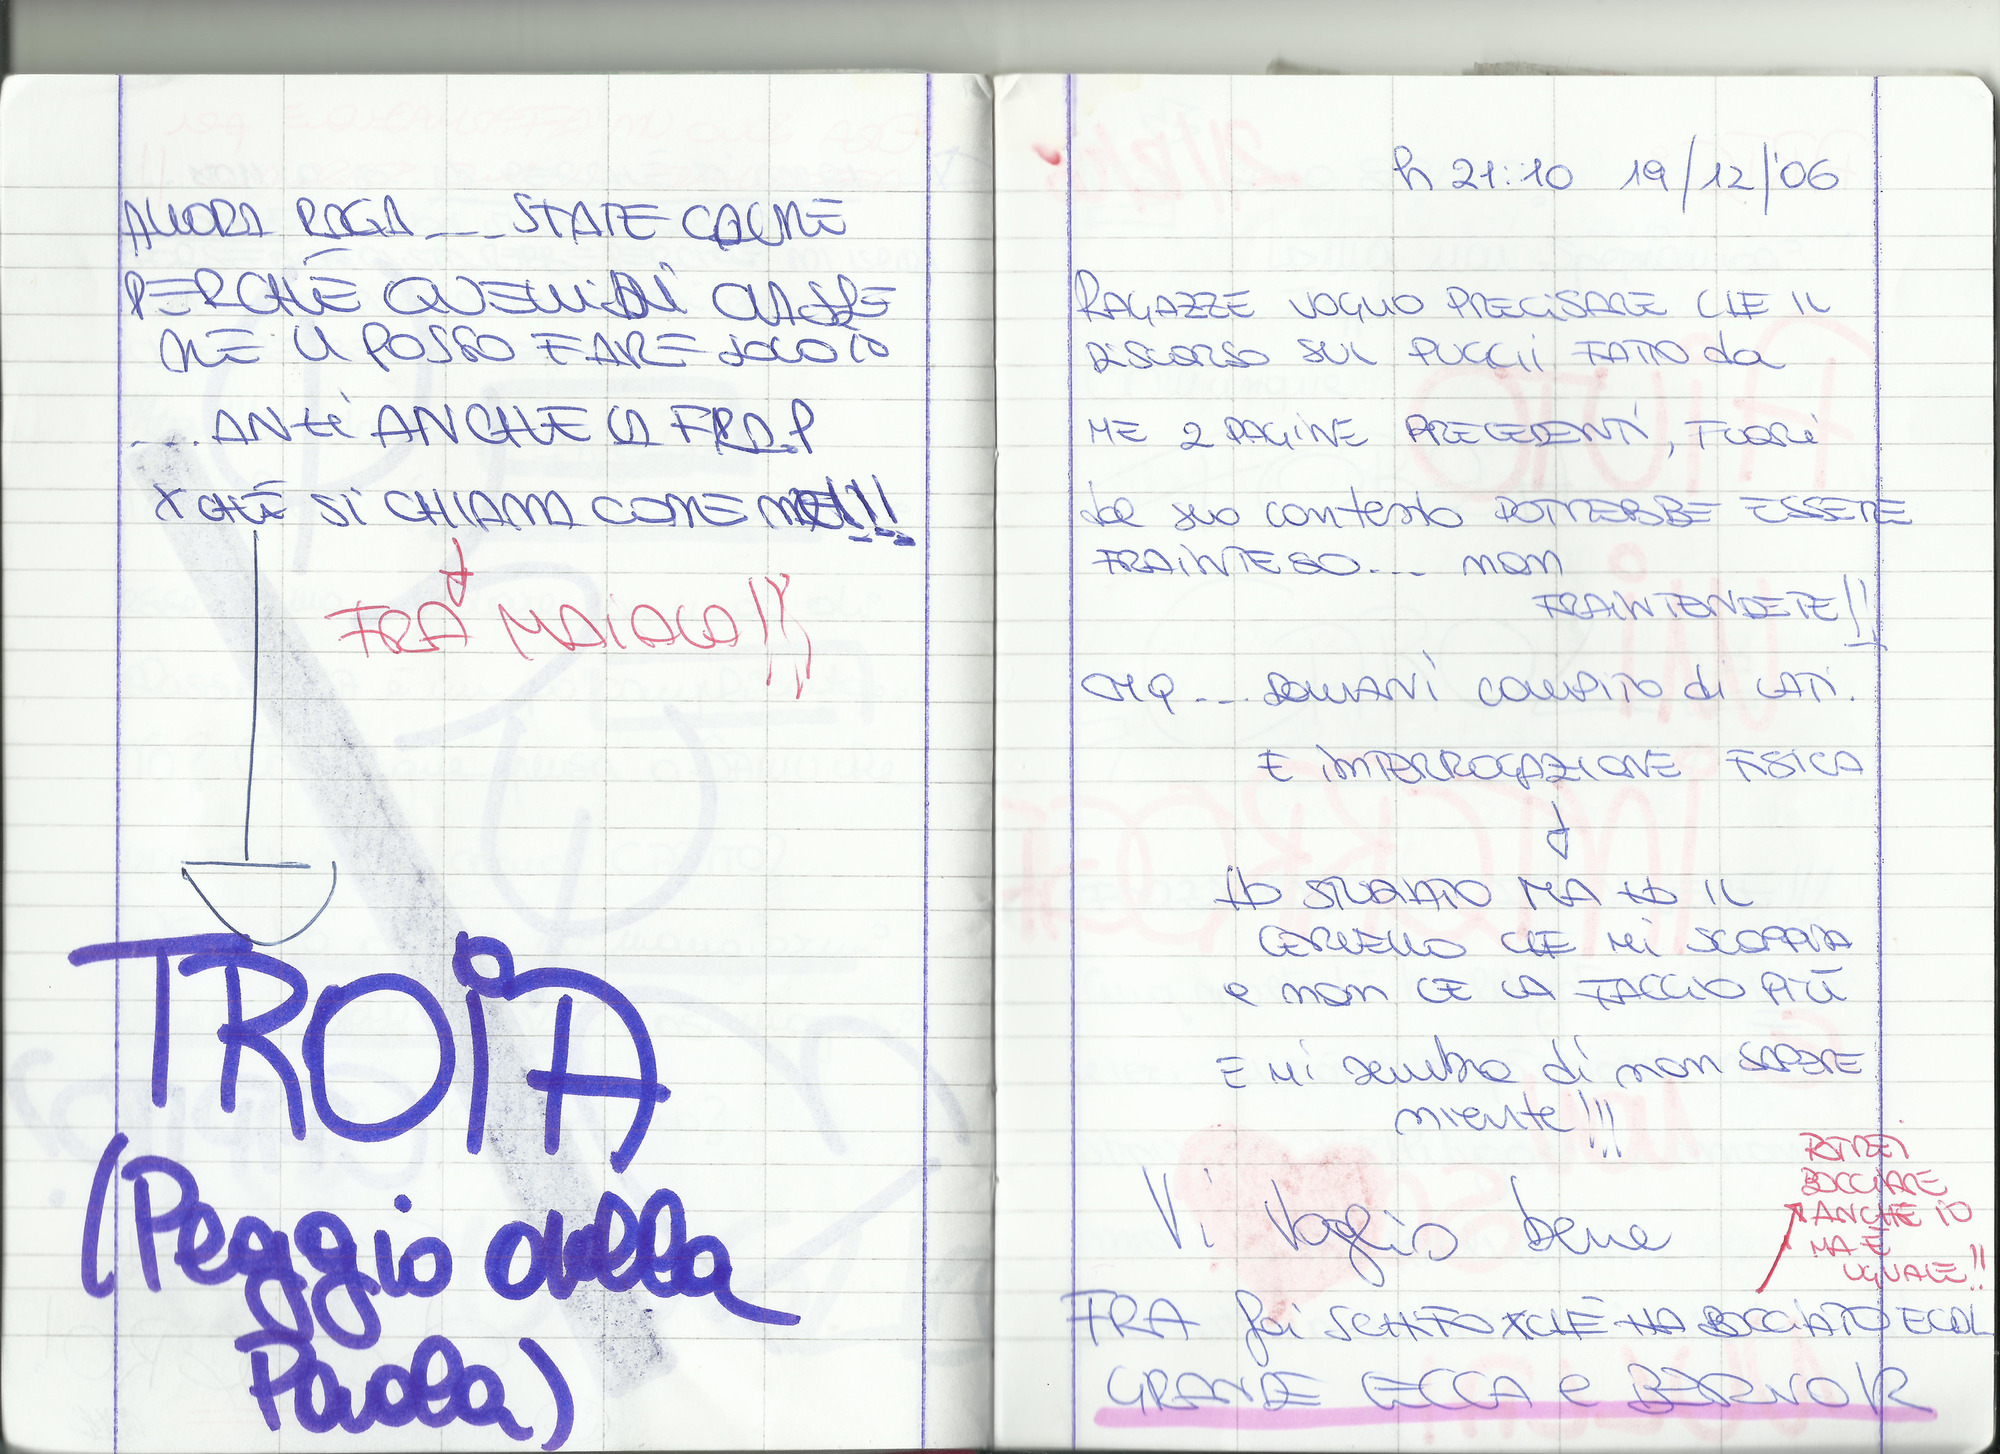 ALLORA RAGA ... STATE CALME
PERCHÉ QUELLI DI CLASSE
ME LI POSSO FARE SOLO IO
.... ANZI ANCHE LA FRA.P
XCHÉ SI CHIAMA COME ME!!!
FRÀ MAIALA!!!
TROIA
(Peggio della
Paola)
h 21:10 19/12/'06
RAGAZZE VOGLIO PRECISARE CHE IL
DISCORSO SUL PUCCII FATTO da
ME 2 PAGINE PRECEDENTI, FUORI
dal suo contesto POTREBBE ESSERE
FRAINTESO.... non
FRAINTENDETE!!
CMQ ... DOMANI COMPITO di LATI.
E INTERROGAZIONE FISICA
HO STUDIATO MA HO IL
CERVELLO CHE MI SCOPPIA
e non CE LA FACCIO PIÙ
E MI sembra di non SAPERE
niente!!!
Vi Voglio bene
POTREI
BOCCIARE
ANCHE IO
MA È
UGUALE!!
FRA fai SCHIFO XCHÉ HA BOCCIATO
GRANDE CECCA e